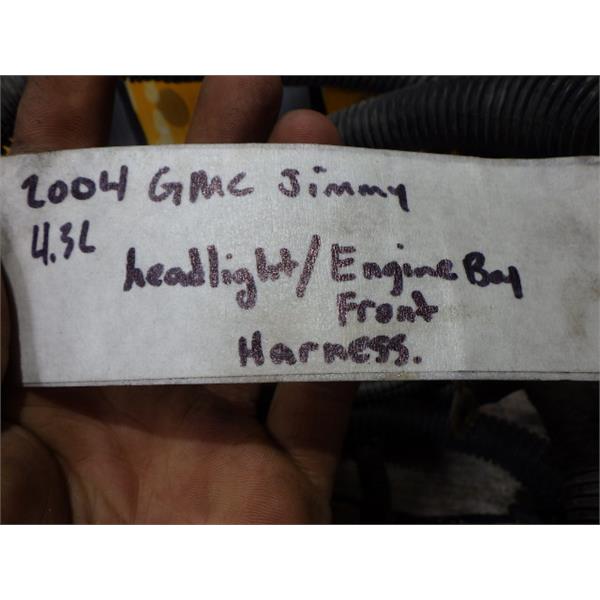 2004 GMC Jimmy
4.3L
headlight/Engine Bay
Front
Harness.